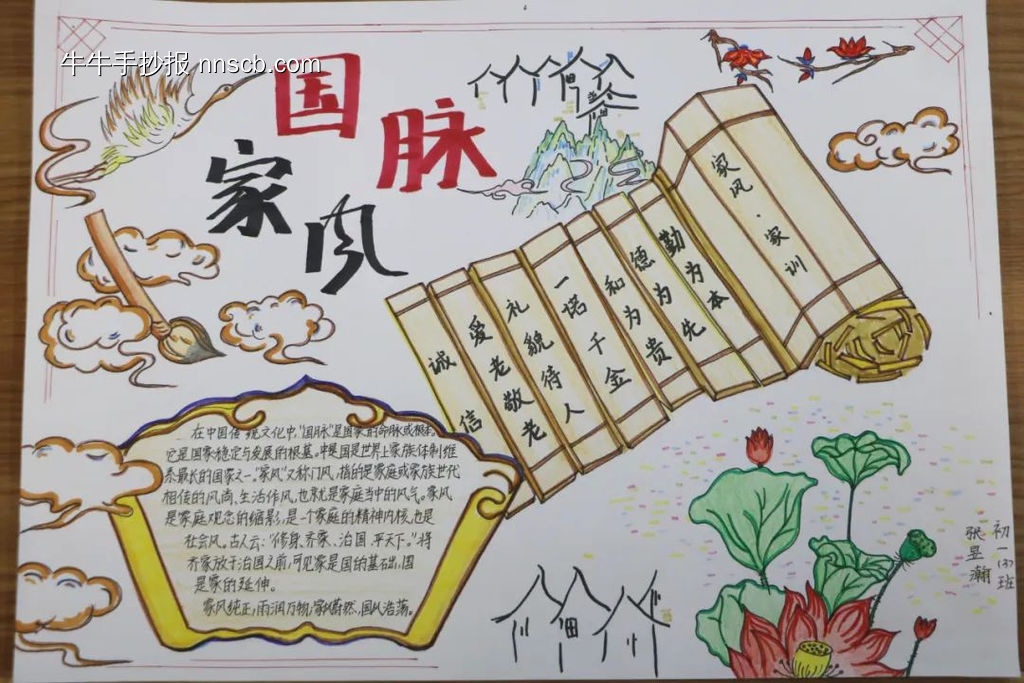 牛牛手抄报 nnscb.com
国脉
家风
家风·家训
勤为本
德为先
和为贵
一诺千金
礼貌待人
爱老敬老
诚信
在中国传统文化中,"国脉"是国家的命脉或根本。
它是国家稳定与发展的根基。中国是世界上家族体制维
系最长的国家之一。"家风"又称门风,指的是家庭或家族世代
相传的风尚、生活作风,也就是家庭当中的风气。家风
是家庭观念的缩影,是一个家庭的精神内核,也是
社会风。古人云:"修身、齐家、治国、平天下。"将
齐家放于治国之前,可见家是国的基础,国
是家的延伸。
家风纯正,雨润万物;家风蔚然,国风浩荡。
初一(3)班
张昱瀚